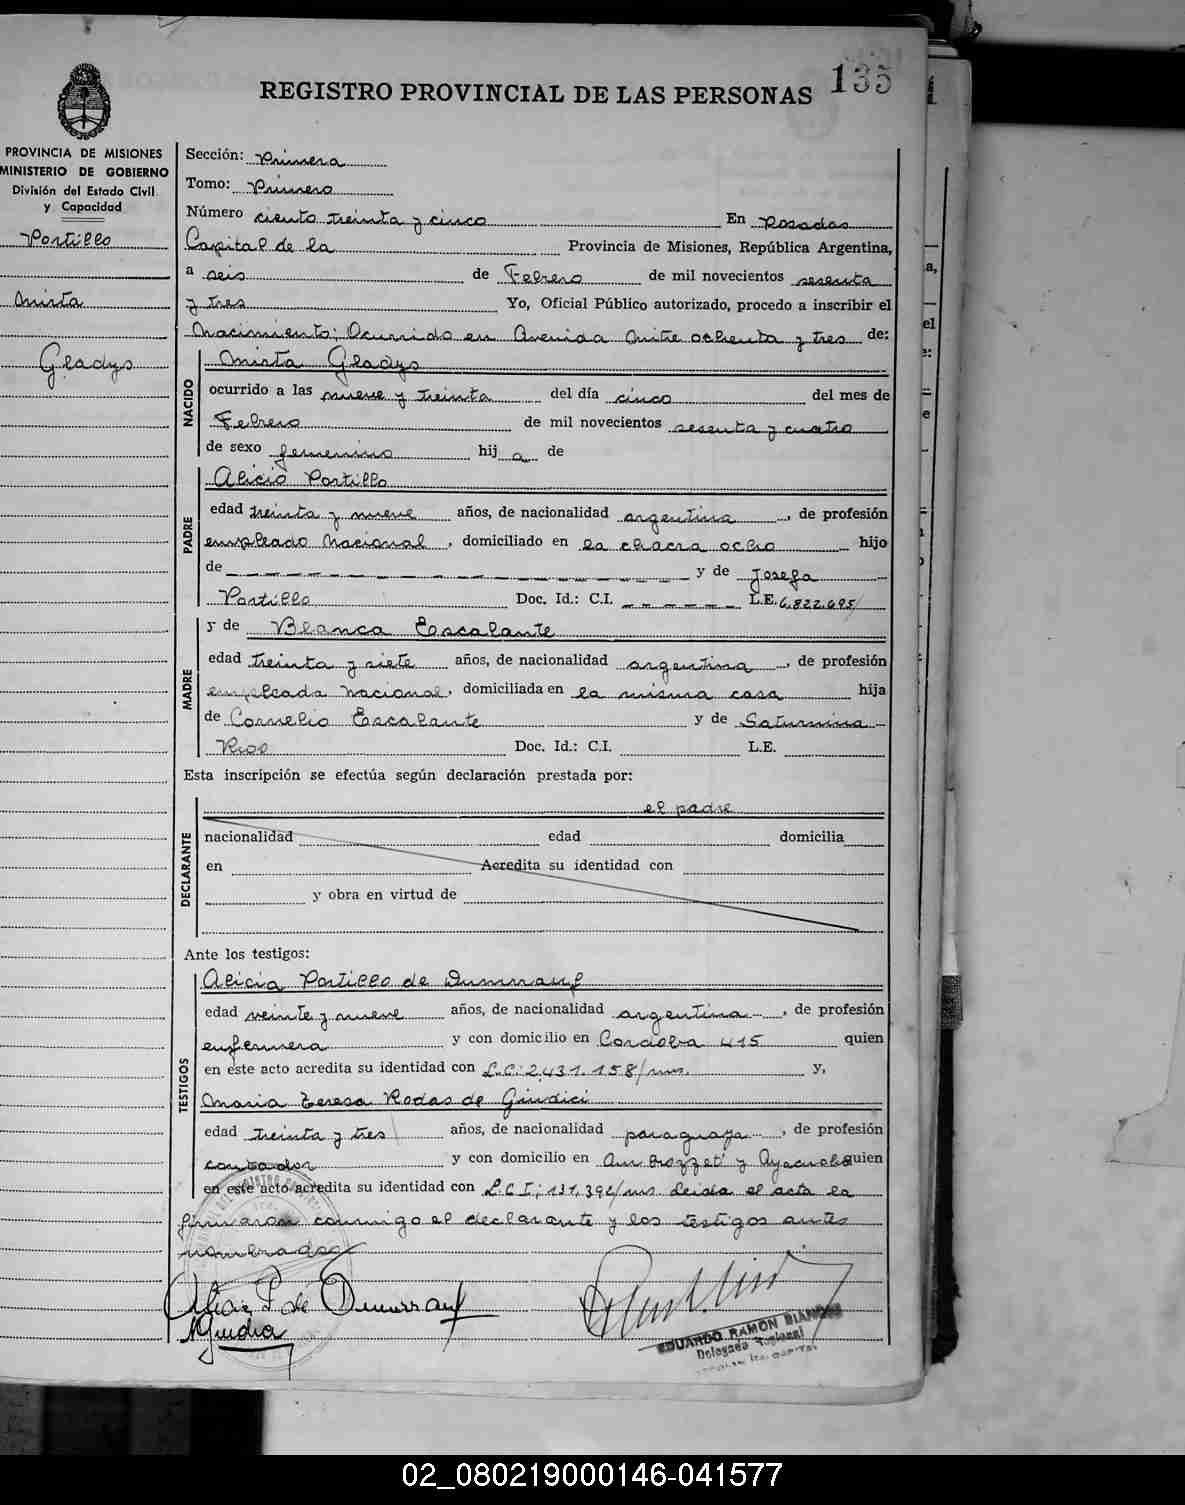 135
REGISTRO PROVINCIAL DE LAS PERSONAS
PROVINCIA DE MISIONES
MINISTERIO DE GOBIERNO
División del Estado Civil
y Capacidad
Portillo
Mirta
Gladys
Sección: Primera
Tomo: Primero
Número ciento treinta y cinco En Posadas
Capital de la Provincia de Misiones, República Argentina,
a seis de Febrero de mil novecientos sesenta
y tres Yo, Oficial Público autorizado, procedo a inscribir el
Nacimiento; Ocurrido en Avenida Mitre ochenta y tres de:
NACIDO
Mirta Gladys
ocurrido a las nueve y treinta del día cinco del mes de
Febrero de mil novecientos sesenta y cuatro
de sexo femenino hij a de
PADRE
Alicio Portillo
edad treinta y nueve años, de nacionalidad argentina, de profesión
empleado Nacional, domiciliado en la chacra ocho hijo
de y de Josefa
Portillo Doc. Id.: C.I. L.E. 6.822.695/
MADRE
y de Blanca Escalante
edad treinta y siete años, de nacionalidad argentina, de profesión
empleada Nacional, domiciliada en la misma casa hija
de Cornelio Escalante y de Saturnina
Rios Doc. Id.: C.I. L.E.
Esta inscripción se efectúa según declaración prestada por:
DECLARANTE
el padre
nacionalidad edad domicilia
en Acredita su identidad con
y obra en virtud de
Ante los testigos:
TESTIGOS
Alicia Portillo de Dumrrauf
edad veinte y nueve años, de nacionalidad argentina, de profesión
enfermera y con domicilio en Cordoba 415 quien
en este acto acredita su identidad con L.C: 2.431.158/ms. y,
Maria Teresa Rodas de Giudici
edad treinta y tres años, de nacionalidad paraguaya, de profesión
contador y con domicilio en y Ayacucho quien
en este acto acredita su identidad con L.C I; 131.392/ms Leida el acta la
firmaron conmigo el declarante y los testigos antes
nombrados
Alicia P de Dumrrauf
EDUARDO RAMON
Delegado Regional
02_080219000146-041577